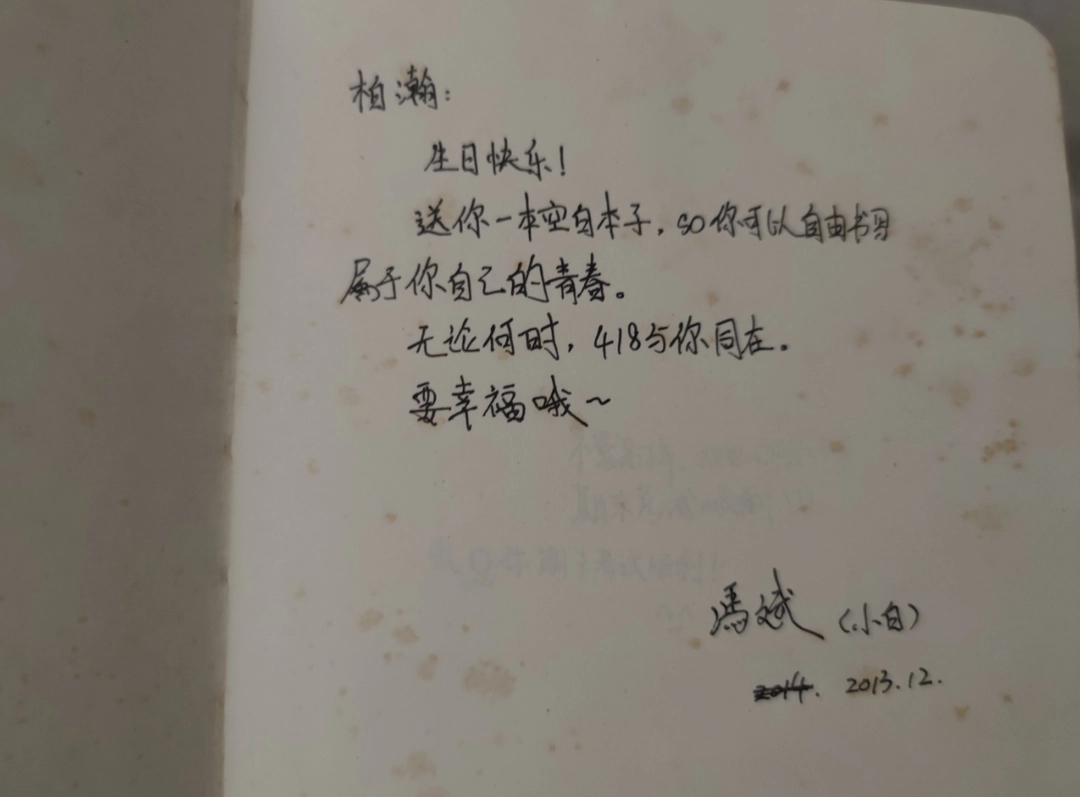 柏瀚：
生日快乐！
送你一本空白本子，so你可以自由书写
属于你自己的青春。
无论何时，418与你同在。
要幸福哦～
冯斌（小白）
2014. 2013.12.